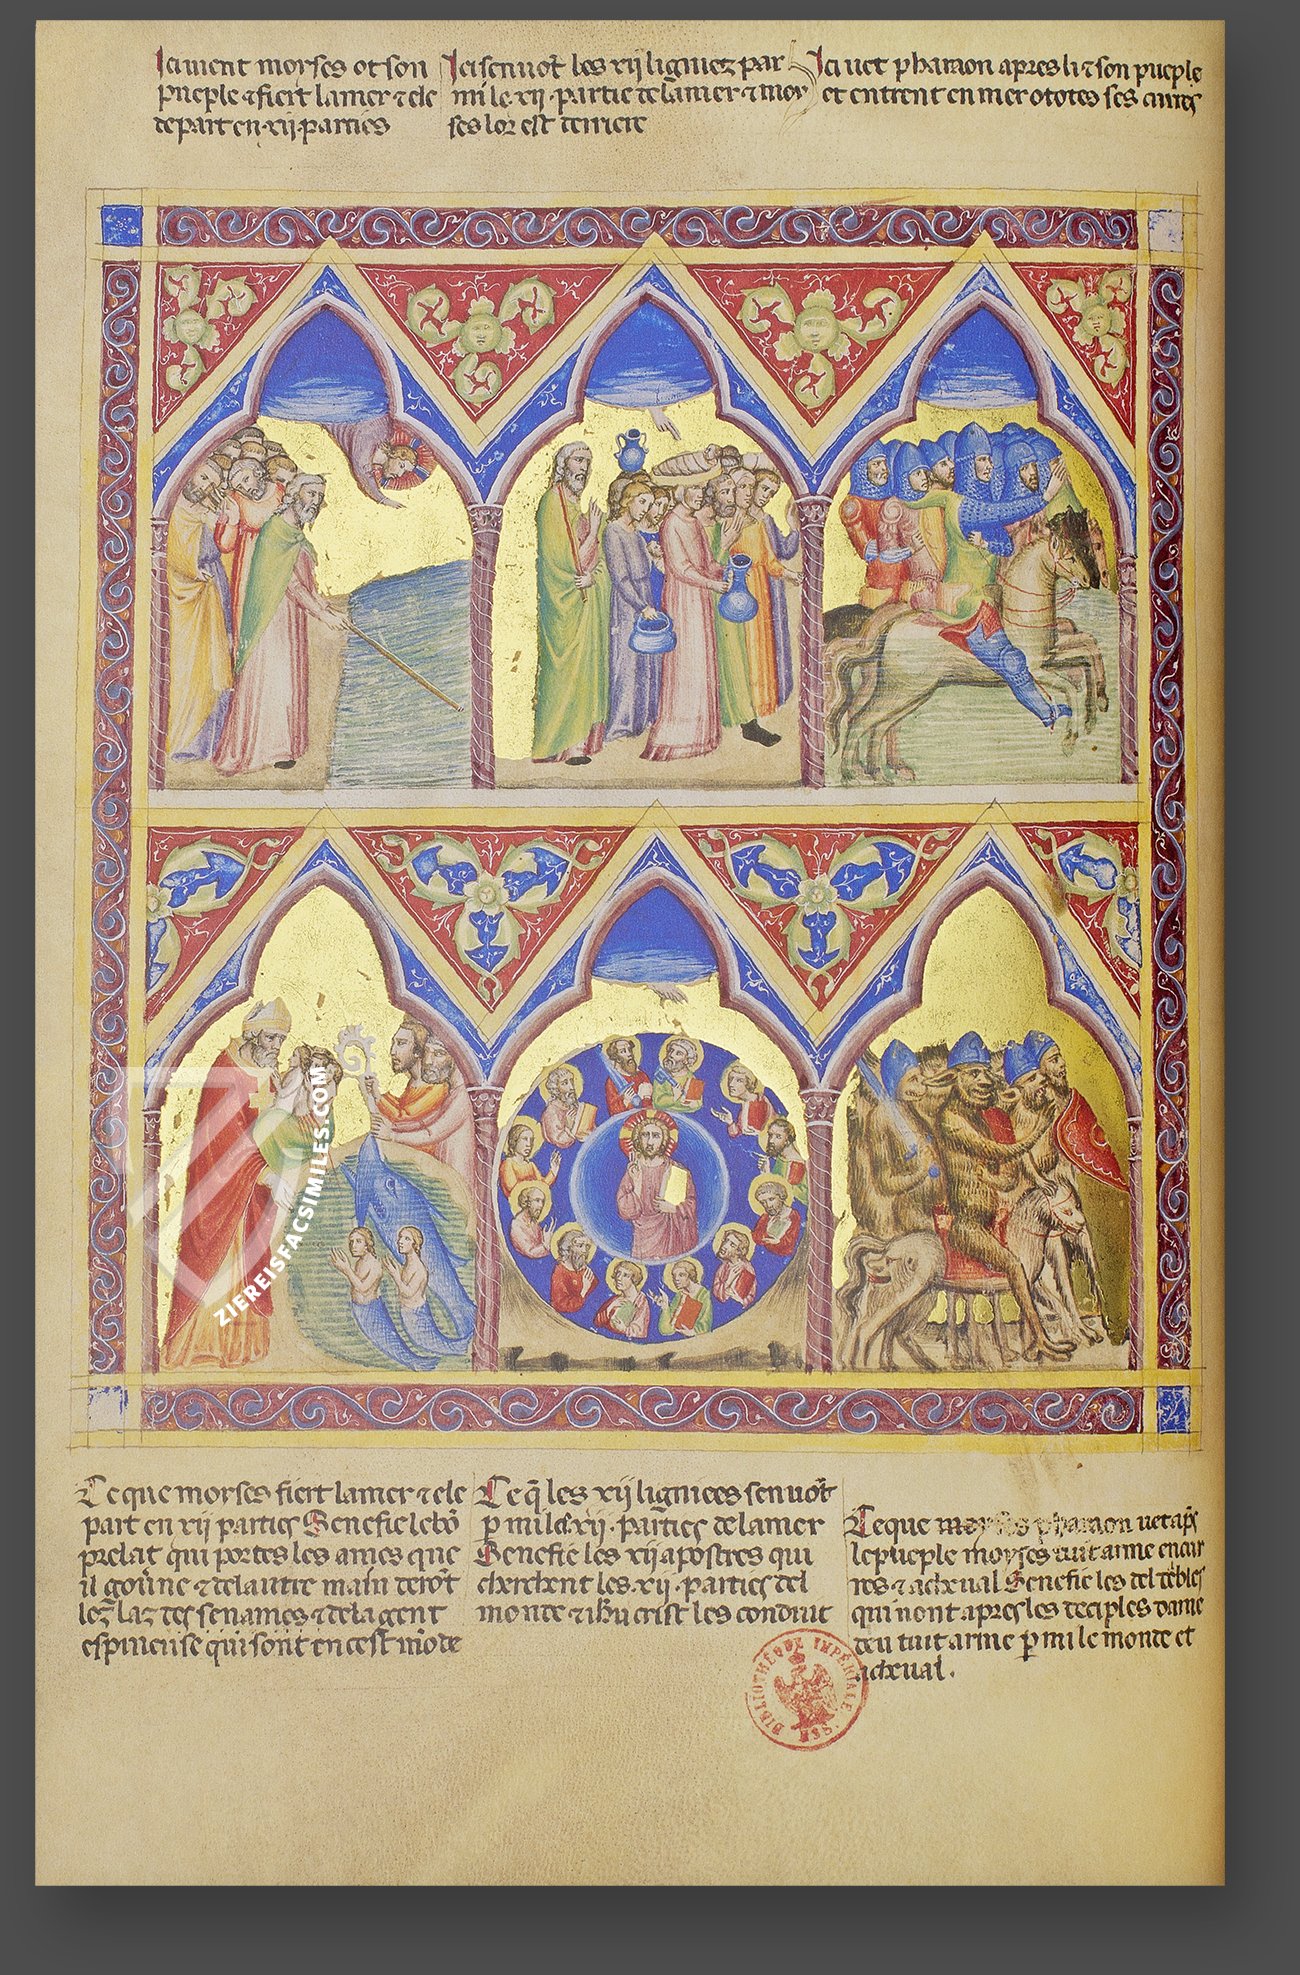 Ici vient moyses ot son
pueple ⁊ fiert la mer ⁊ ele
depart en ·xij· parties
Ici sen uot les xij ligniez par
mi le ·xij· partie de la mer ⁊ moy
ses lor est derriere
Ici uet pharaon apres li ⁊ son pueple
et entrent en mer o totes ses
Ce que moyses fiert la mer ⁊ ele
part en xij parties Senefie le bō
prelat qui portes les ames que
il gouṽne ⁊ de lautre main derōt
les laz des ames ⁊ de la gent
espineuse qui sont en cest mōde
Ce q̄ les xij ligniees sen uōt
ꝑ mi les ·xij· parties de la mer
Senefie les xij apostres qui
cherchent les ·xij· parties del
monde ⁊ ihū crist les conduit
Ce que pharaon uet apres
le pueple moyses tuit arme en cur
res ⁊ a cheual Senefie les deables
qui uont apres les deciples dame
deu tuit arme ꝑ mi le monde et
a cheual.
BIBLIOTHÈQUE IMPÉRIALE MSS
ZIEREISFACSIMILES.COM